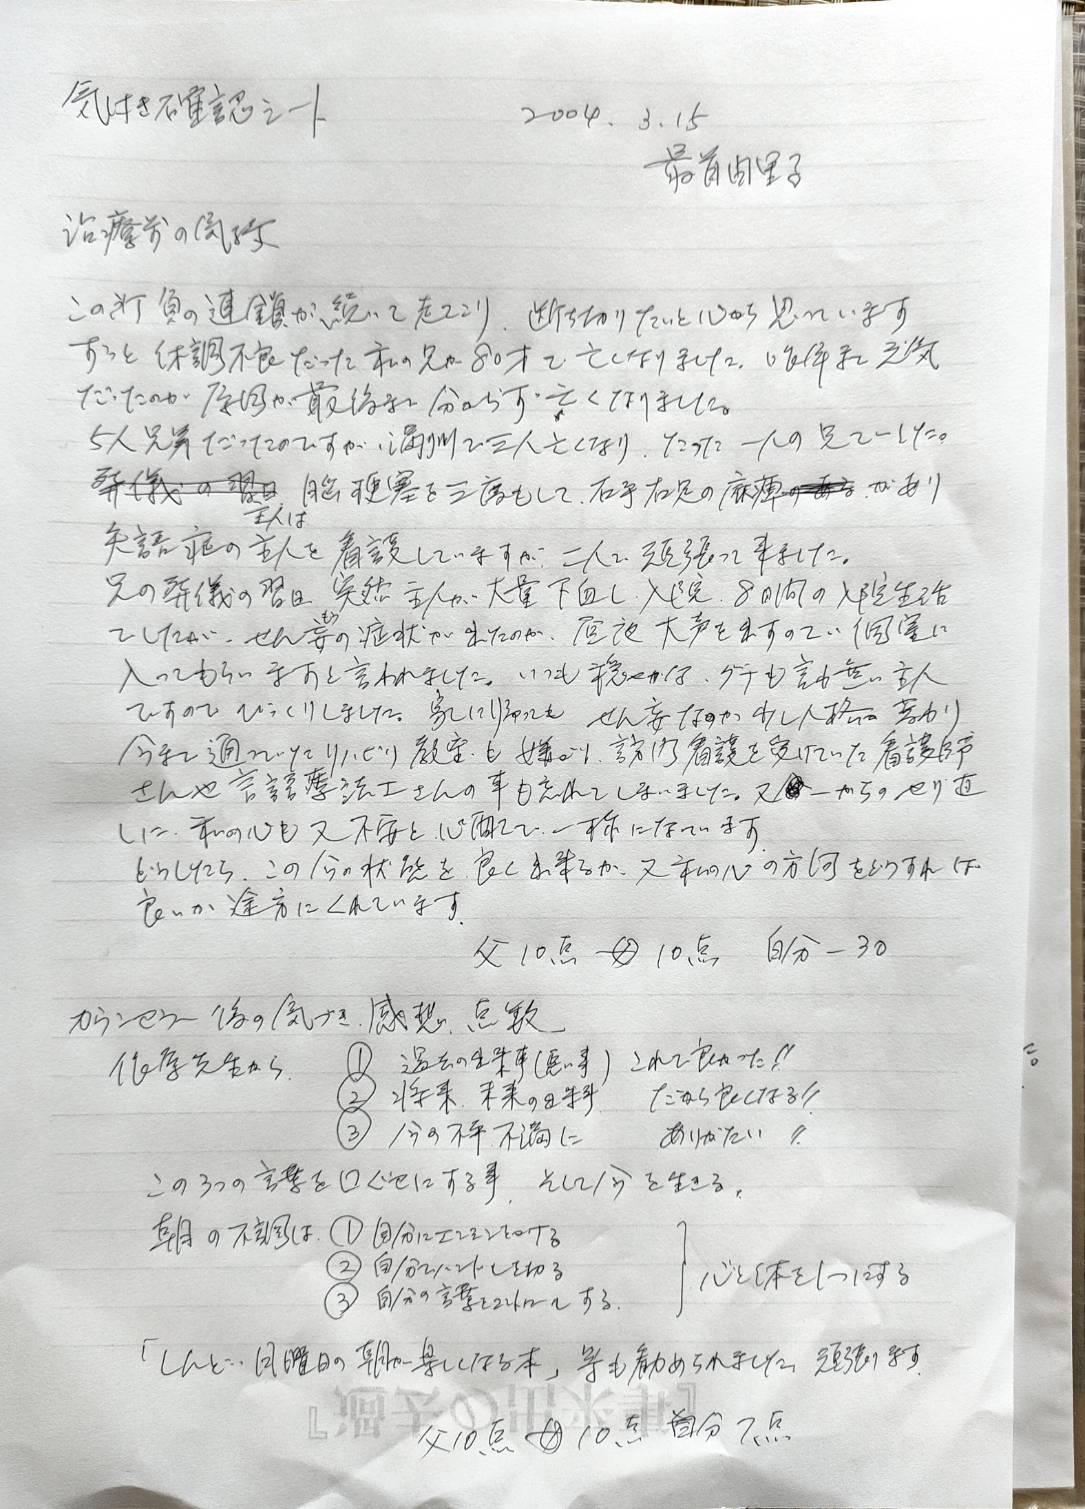 気付き確認シート 2004. 3. 15
最首由里子
治療前の気持
この所 負の連鎖が続いて居り、断ち切りたいと心から思っています
ずっと体調不良だった私の兄が80才で亡くなりました。昨年まで元気
だったのが 原因が最後まで分からず亡くなりました。
5人兄弟だったのですが、満州で三人亡くなり、たった一人の兄でした。
葬儀の翌日 脳梗塞を三度もして、右手右足の麻痺があり
主人は
失語症の主人を看護していますが、二人で頑張って来ました。
兄の葬儀の翌日 突然主人が大量下血し入院、8日間の入院生活
でしたが、せん妄の症状が出たのか、昼夜大声を出すので、個室に
入ってもらいますと言われました。いつも穏やかな、グチも言わ無い主人
ですので びっくりしました。家に帰っても せん妄なのか少し人格が変わり
今まで通っていたリハビリ教室も嫌がり、訪問看護を受けていた看護師
さんや言語療法士さんの事も忘れてしまいました。又 一からのやり直
しに、私の心も又不安と心配で一杯になっています。
どうしたら、この今の状態を良く出来るか、又私の心の方向をどうすれば
良いか途方にくれています。
父10点 母10点 自分-30
カウンセラー後の気づき、感想、点数
先生から ① 過去の出来事(悪い事) これで良かった!!
② 将来、未来の出来事 だから良くなる!!
③ 今の不平不満に ありがたい!!
この3つの言葉を口ぐせにする事、そして今を生きる。
朝の不調は、① 自分にエンジンをかける
② 自分でハンドルを切る
③ 自分の言葉をコントロールする。
心と体を1つにする
「しんどい月曜日の朝が楽しくなる本」等も勧められました。頑張ります。
父10点 母10点 自分 7点